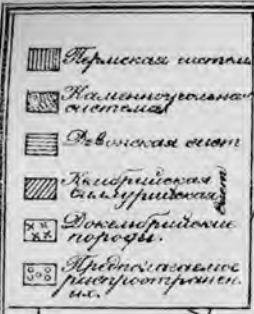 Пермская систем
Каменноугольная
система
Девонская сист
Кембрийская
силлурийская сист
Докембрийские
породы.
Предполагаемое
распространен.
их.